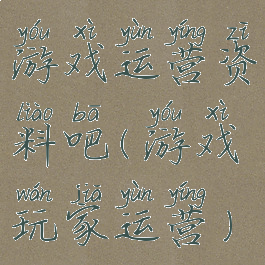 yóu xì yùn yíng zī
游戏运营资
liào bā yóu xì
料吧(游戏
wán jiā yùn yíng
玩家运营)